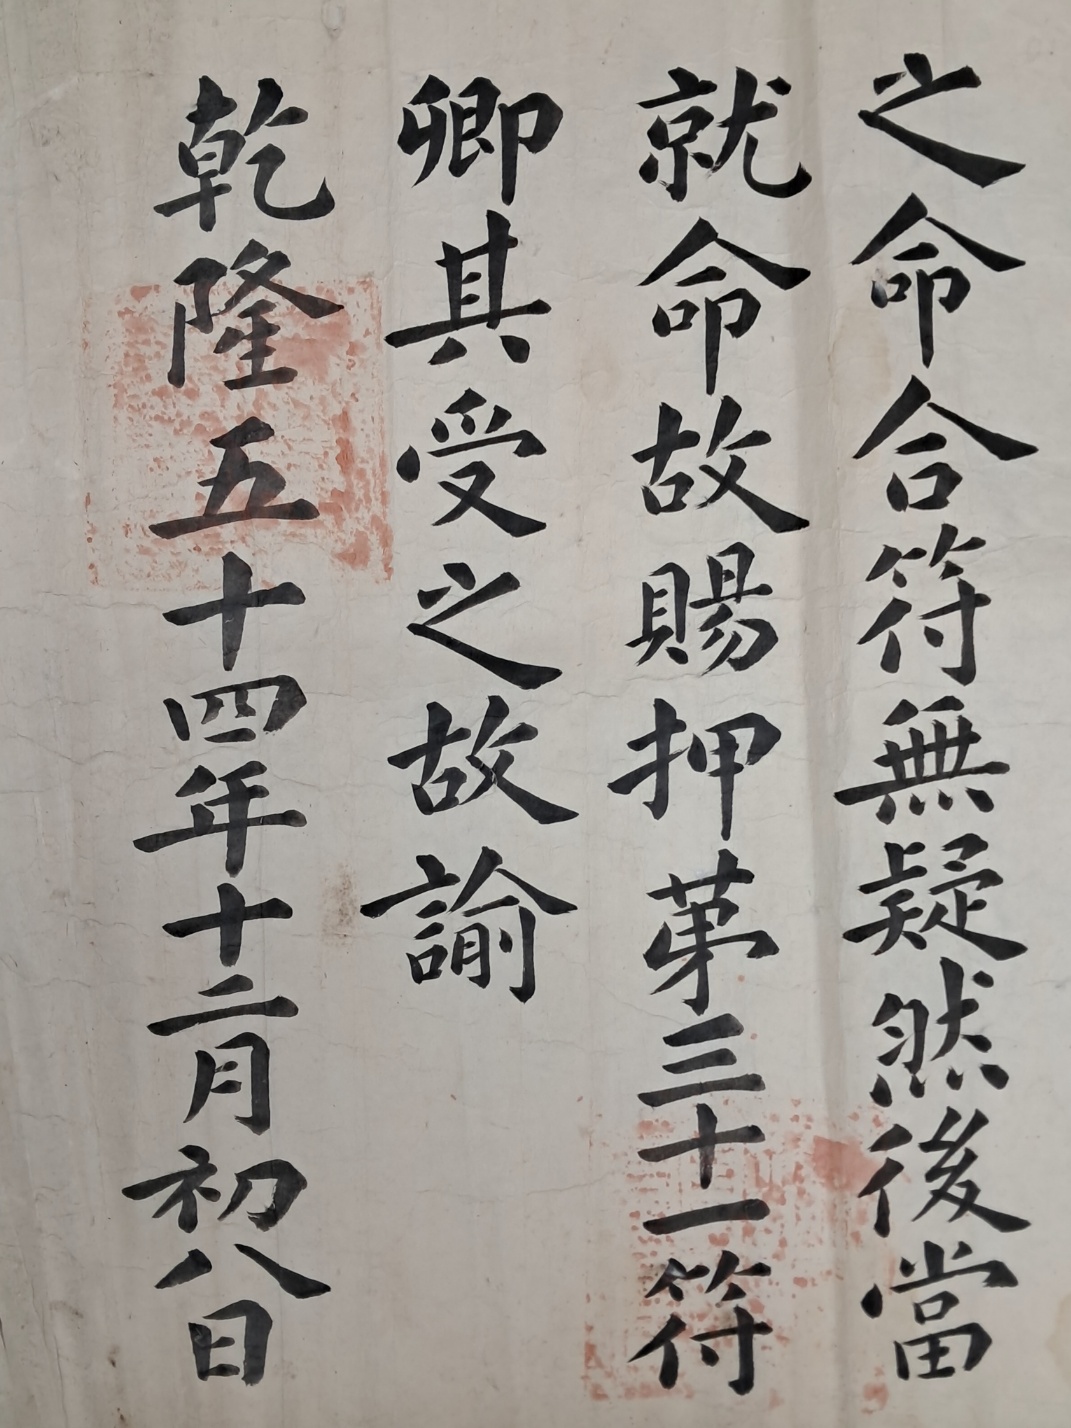 之命合符無疑然後當
就命故賜押苐三十一符
卿其受之故諭
乾隆五十四年十二月初八日